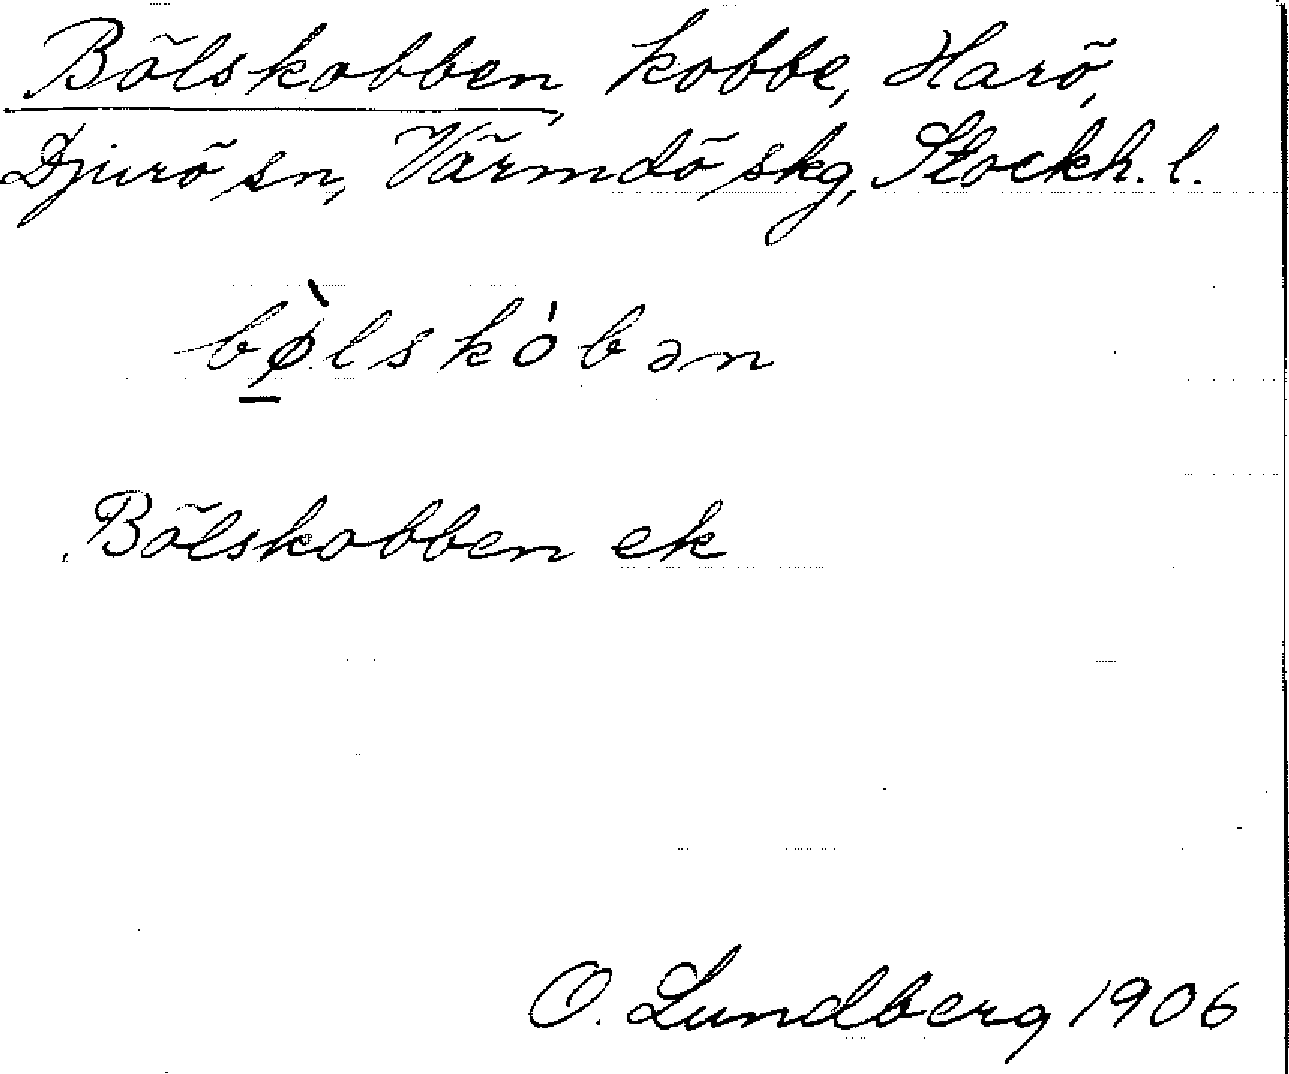 Bölskobben, kobbe, Harö,
Djurö sn, Värmdö skg, Stockh. l.
bø̱̀lskȯ́bən
Bölskobben ek
O. Lundberg 1906